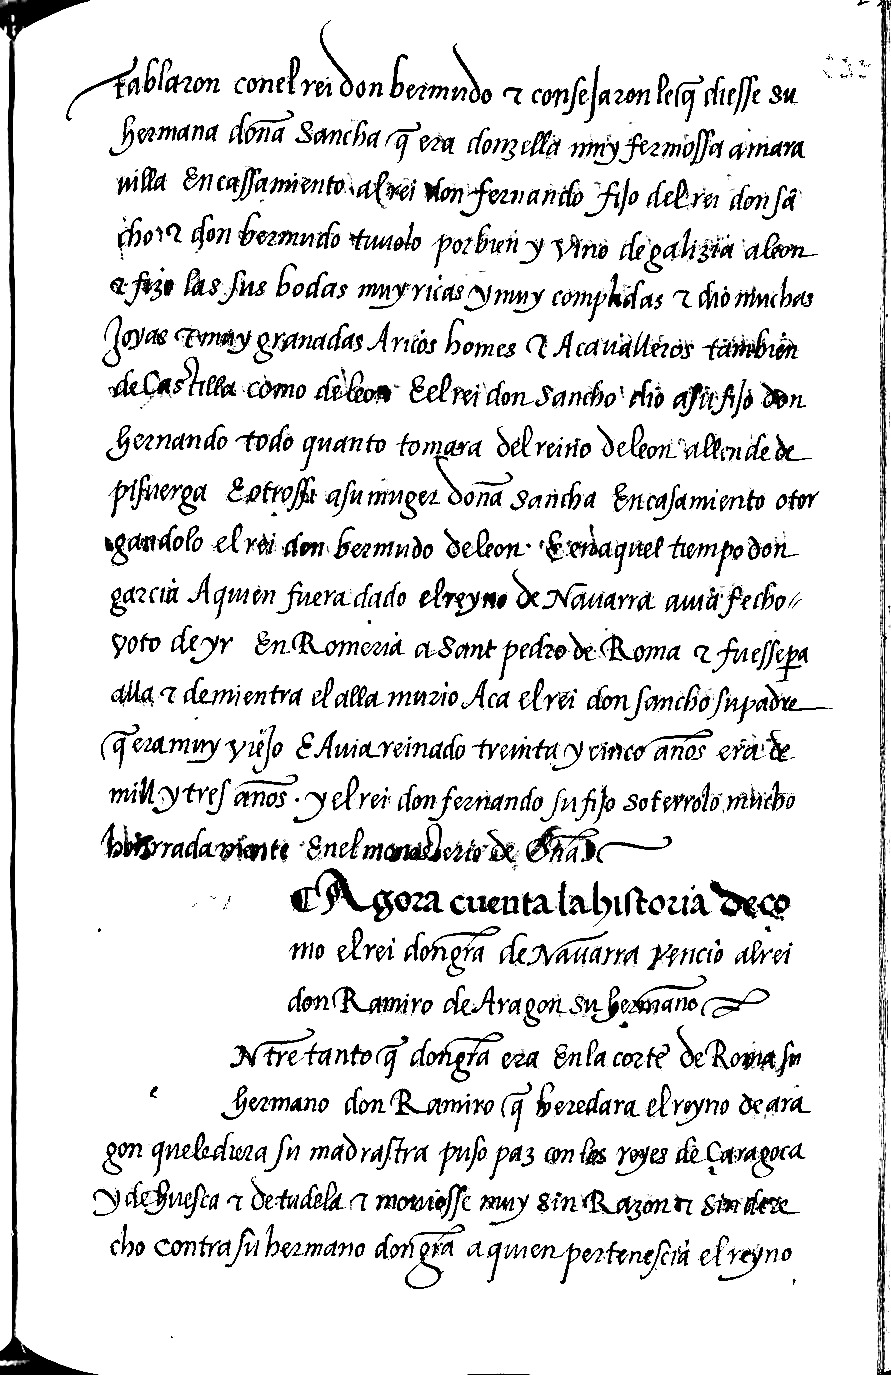 fablaron con el rei don bermudo τ consejaron le q̃ diesse su
hermana doña Sancha q̃ era donzella muy fermossa a mara
uilla En cassamiento al rei don fernando fijo del rei don sã
cho τ don bermudo tuuolo por bien y vino de galizia a leon
τ fizo las sus bodas muy ricas y muy complidas τ dio muchas
Joyas τ muy granadas A ricos homes τ A caualleros tambien
de Castilla como de leon E el rei don Sancho dio a su fijo don
hernando todo quanto tomara del reino de leon allende de
pisuerga E otrossi a su muger doña Sancha En casamiento otor
gandolo el rei don bermudo de leon. E en aquel tiempo don
garcia A quien fuera dado el reyno de Nauarra auia fecho
voto de yr En Romeria a Sant pedro de Roma τ fuesse pa
alla τ demientra el alla murio Aca el rei don sancho su padre
q̃ era muy viejo E Auia reinado treinta y cinco años era de
mill y tres años. y el rei don fernando su fijo soterrolo mucho
honrradamente En el monasterio de Oña
Agora cuenta la historia de co
mo el rei don gr̃a de Nauarra vencio al rei
don Ramiro de Aragon su hermano
Ntre tanto q̃ don gr̃a era En la corte de Roma su
hermano don Ramiro q̃ heredara el reyno de ara
gon que le diera su madrastra puso paz con los reyes de Çaragoça
y de huesca τ de tudela τ mouiosse muy sin Razon τ sin dere
cho contra su hermano don gr̃a a quien pertenescia el reyno